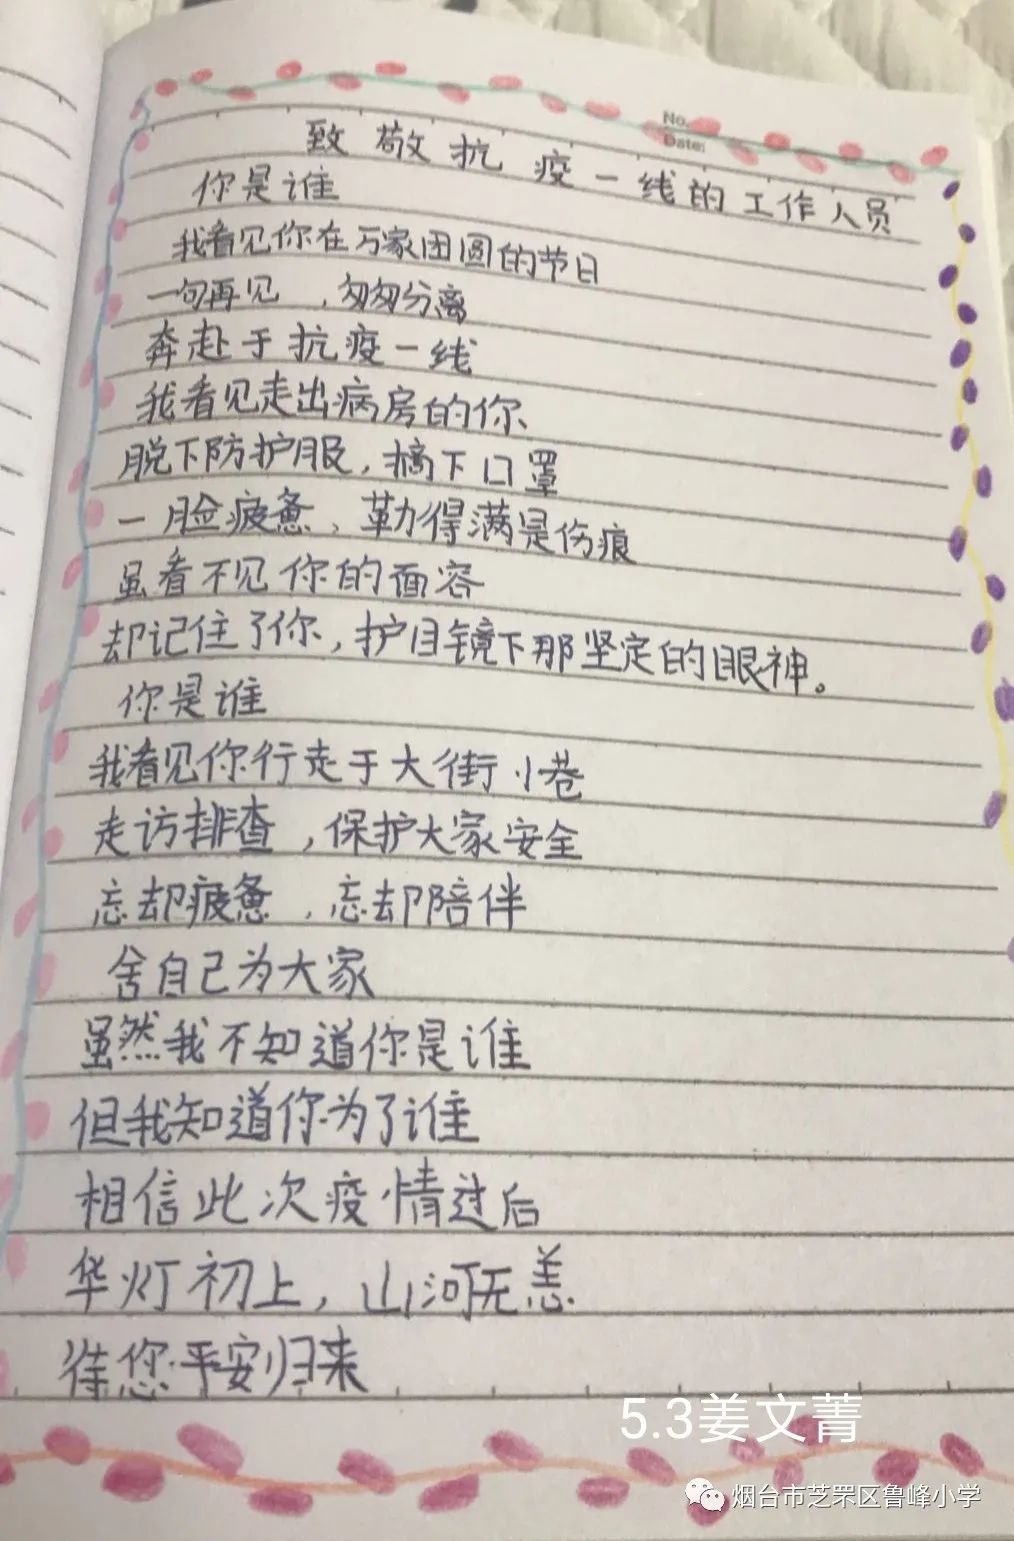 No.
Date:
致敬抗疫一线的工作人员
你是谁
我看见你在万家团圆的节日
一句再见，匆匆分离
奔赴于抗疫一线
我看见走出病房的你
脱下防护服，摘下口罩
一脸疲惫，勒得满是伤痕
虽看不见你的面容
却记住了你，护目镜下那坚定的眼神。
你是谁
我看见你行走于大街小巷
走访排查，保护大家安全
忘却疲惫，忘却陪伴
舍自己为大家
虽然我不知道你是谁
但我知道你为了谁
相信此次疫情过后
华灯初上，山河无恙
待您平安归来
5.3姜文菁
烟台市芝罘区鲁峰小学